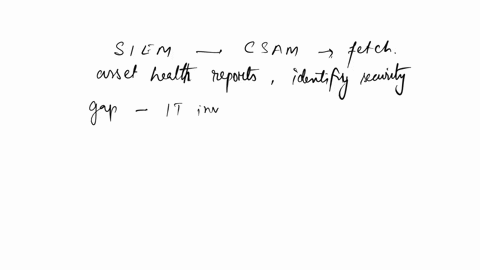 SIEM — CSAM → fetch.
asset health reports, identify security
gap — IT inv